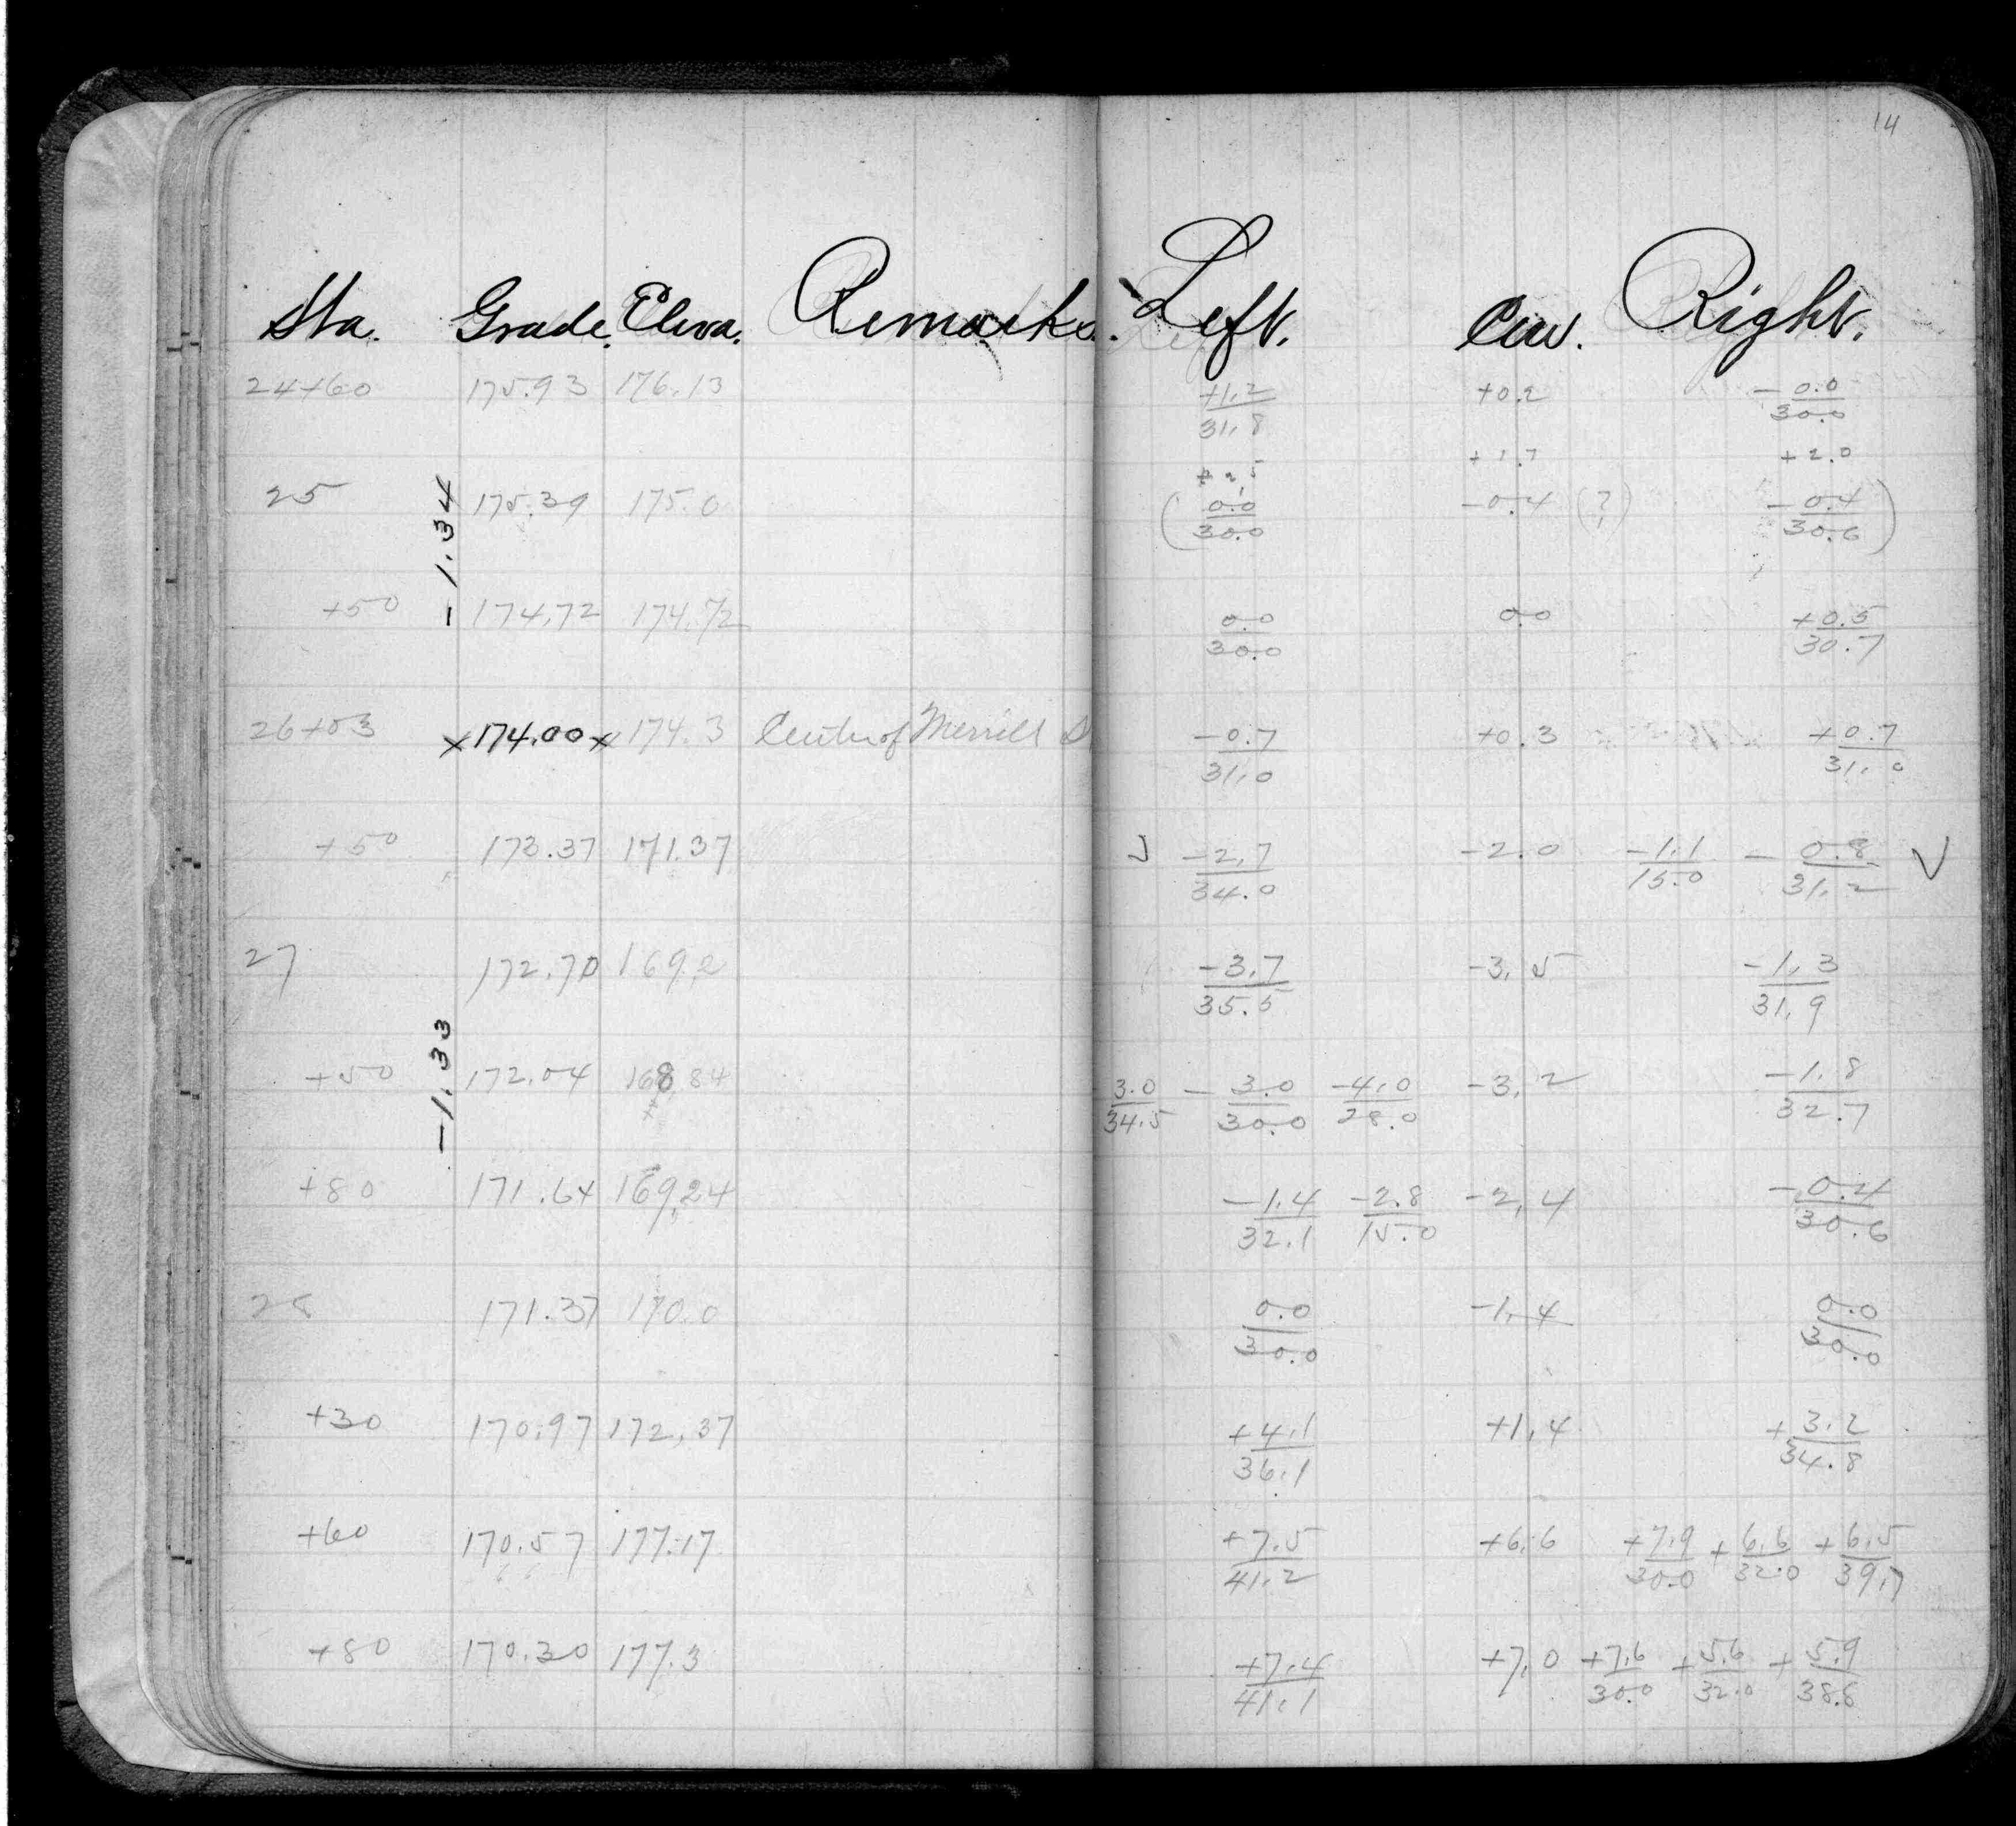 14
Sta. Grade. Eleva. Remarks. Left. Cen. Right.
24+60 175.93 176.13 +1.2/31.8 +0.2 -0.0/30.0
+2.5 +1.7 +2.0
25 175.39 175.0 (0.0/30.0 -0.4 (?) -0.4/30.6)
-1.34
+50 174.72 174.72 0.0/30.0 0.0 +0.5/30.7
26+03 x174.00x 174.3 Center of Merrill S -0.7/31.0 +0.3 +0.7/31.0
+50 173.37 171.37 √ -2.7/34.0 -2.0 -1.1/15.0 -0.8/31.2 √
27 172.70 169.2 -3.7/35.5 -3.5 -1.3/31.9
-1.33
+50 172.04 168.84 3.0/34.5 -3.0/30.0 -4.0/28.0 -3.2 -1.8/32.7
+80 171.64 169.24 -1.4/32.1 -2.8/15.0 -2.4 -0.4/30.6
28 171.37 170.0 0.0/30.0 -1.4 0.0/30.0
+30 170.97 172.37 +4.1/36.1 +1.4 +3.2/34.8
+60 170.57 177.17 +7.5/41.2 +6.6 +7.9/30.0 +6.6/32.0 +6.5/39.7
+80 170.30 177.3 +7.4/41.1 +7.0 +7.6/30.0 +5.6/32.0 +5.9/38.8